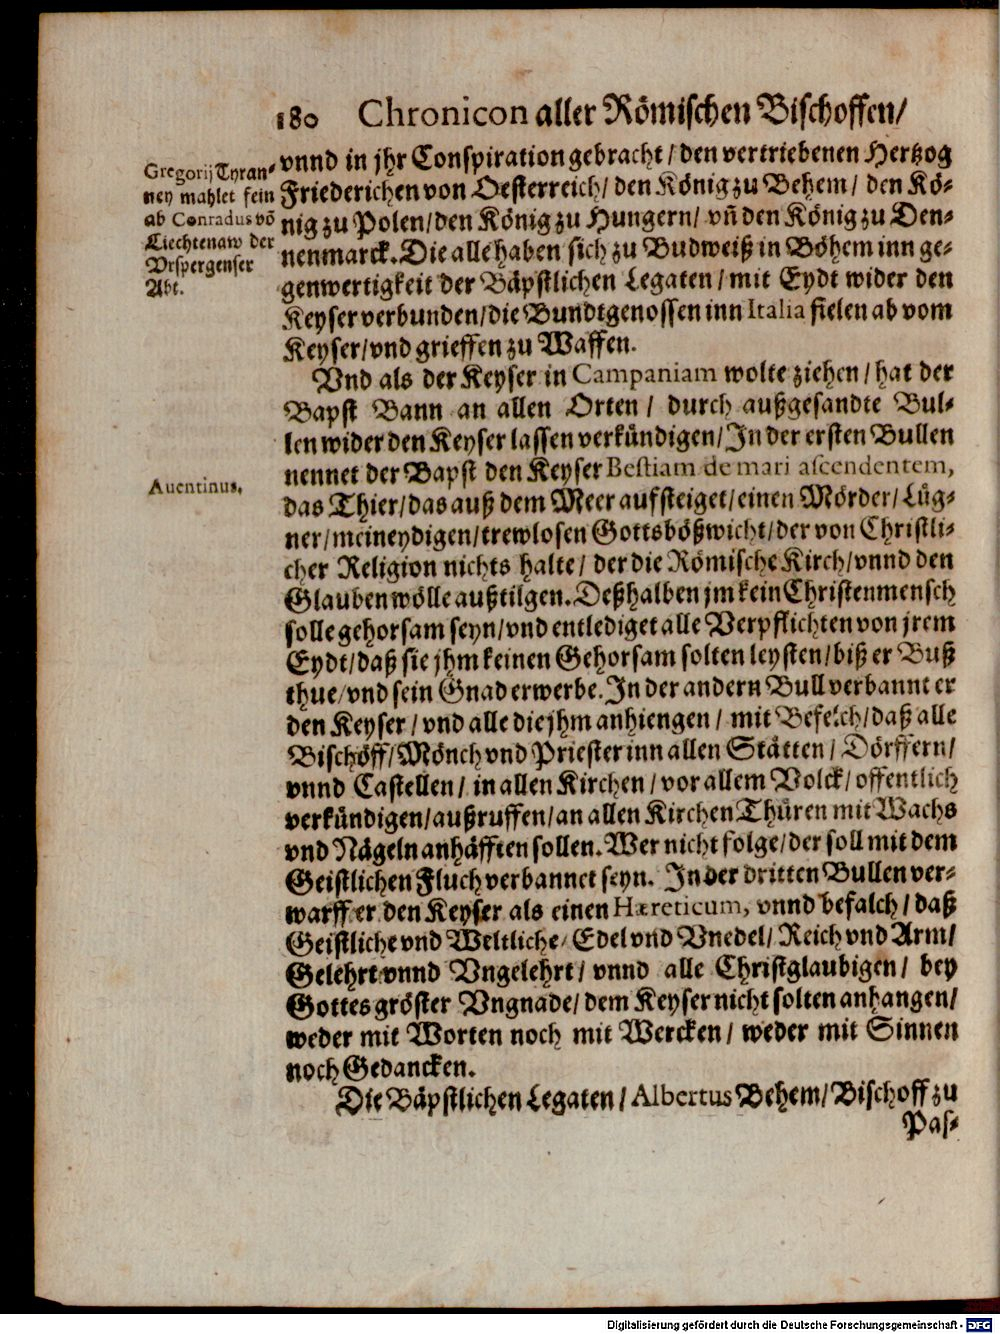 180 Chronicon aller Römischen Bischoffen/
Gregorij Tyran-
ney mahlet fein
ab Conradus võ
Liechtenaw der
Vrspergenser
Abt.
vnnd in jhr Conspiration gebracht/ den vertriebenen Hertzog
Friederichen von Oesterreich/ den König zu Behem/ den Kö-
nig zu Polen/ den König zu Hungern/ vñ den König zu Den-
nenmarck. Die alle haben sich zu Budweiß in Böhem inn ge-
genwertigkeit der Bäpstlichen Legaten/ mit Eydt wider den
Keyser verbunden/ die Bundtgenossen inn Italia fielen ab vom
Keyser/ vnd grieffen zu Waffen.
Vnd als der Keyser in Campaniam wolte ziehen/ hat der
Bapst Bann an allen Orten/ durch außgesandte Bul-
len wider den Keyser lassen verkündigen/ In der ersten Bullen
nennet der Bapst den Keyser Bestiam de mari ascendentem,
Aventinus.
das Thier/ das auß dem Meer aufsteiget/ einen Mörder/ Lüg-
ner/ meineydigen/ trewlosen Gottsbößwicht/ der von Christli-
cher Religion nichts halte/ der die Römische Kirch/ vnnd den
Glauben wölle außtilgen. Deßhalben jm kein Christenmensch
solle gehorsam seyn/ vnd entlediget alle Verpflichten von jrem
Eydt/ daß sie jhm keinen Gehorsam solten leysten/ biß er Buß
thue/ vnd sein Gnad erwerbe. In der andern Bull verbannt er
den Keyser/ vnd alle die jhm anhiengen/ mit Befelch/ daß alle
Bischöff/ Mönch vnd Priester inn allen Stätten/ Dörffern/
vnnd Castellen/ in allen Kirchen/ vor allem Volck/ offentlich
verkündigen/ außruffen/ an allen Kirchen Thüren mit Wachs
vnd Nägeln anhäfften sollen. Wer nicht folge/ der soll mit dem
Geistlichen Fluch verbannet seyn. In der dritten Bullen ver-
warff er den Keyser als einen Hæreticum, vnnd befalch/ daß
Geistliche vnd Weltliche/ Edel vnd Vnedel/ Reich vnd Arm/
Gelehrt vnnd Vngelehrt/ vnnd alle Christglaubigen/ bey
Gottes gröster Vngnade/ dem Keyser nicht solten anhangen/
weder mit Worten noch mit Wercken/ weder mit Sinnen
noch Gedancken.
Die Bäpstlichen Legaten/ Albertus Behem/ Bischoff zu
Pas-
Digitalisierung gefördert durch die Deutsche Forschungsgemeinschaft - DFG